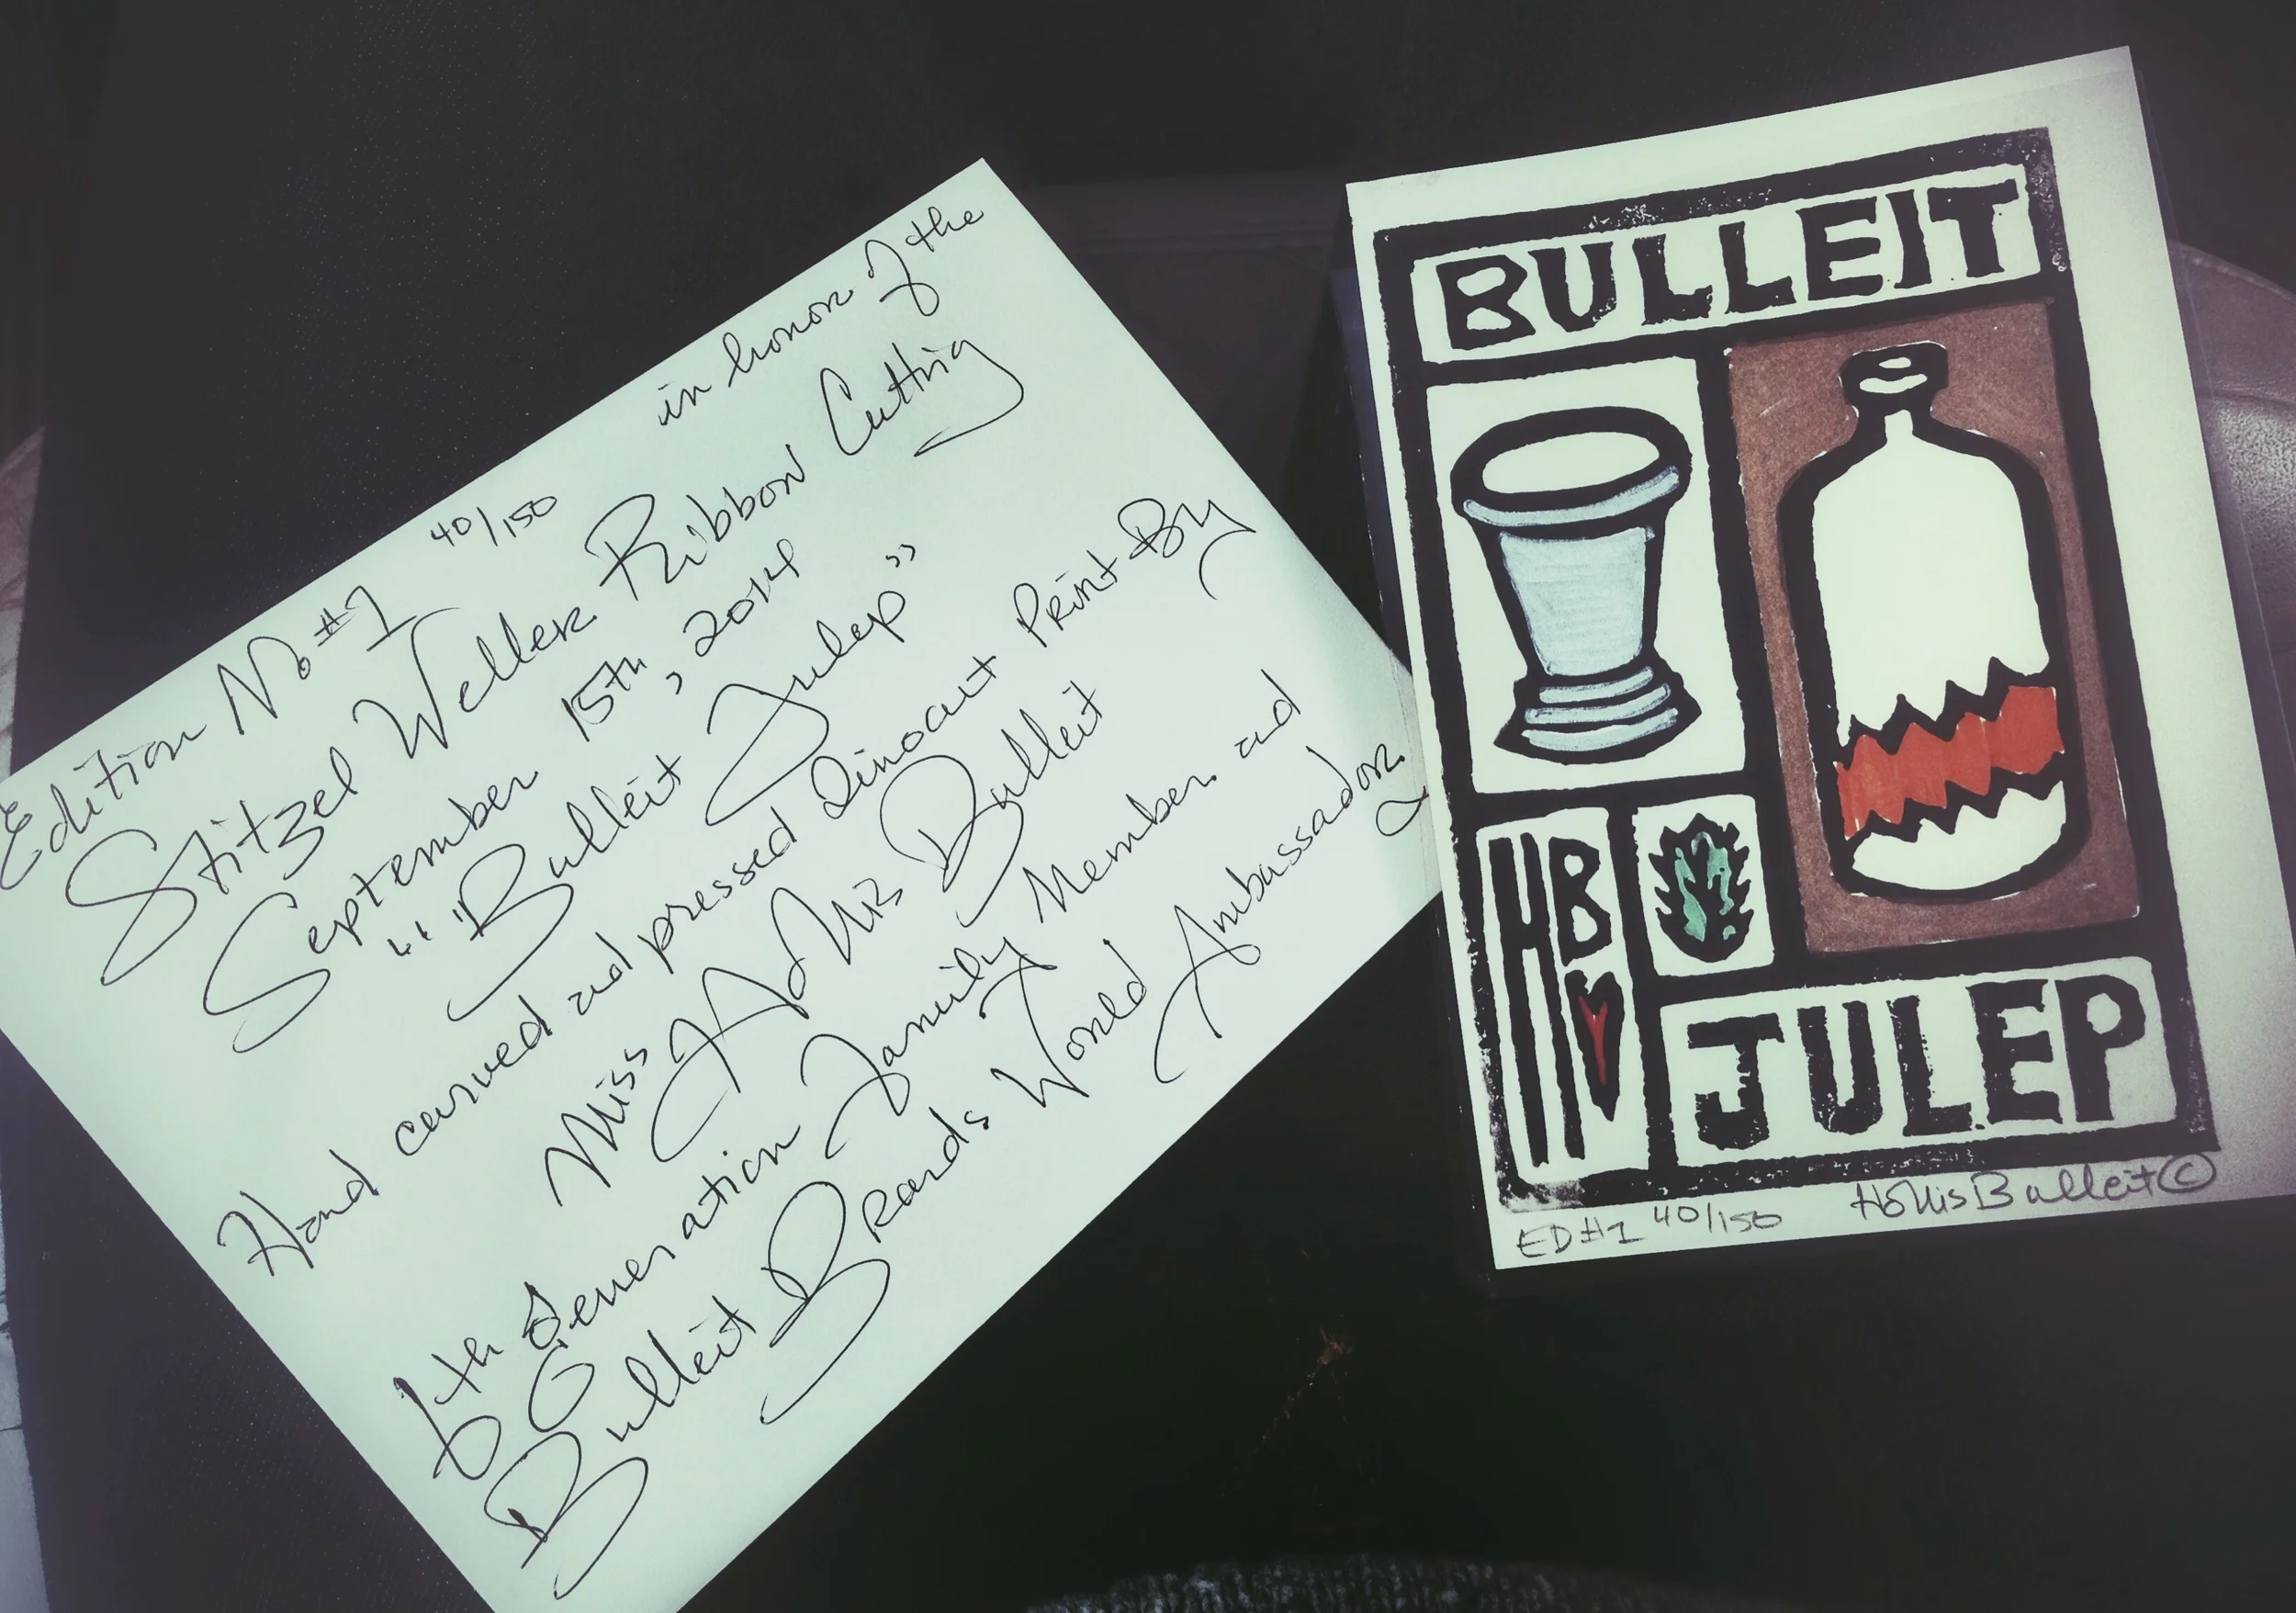 Edition No #1 40/150 in honor of the
Stitzel Weller Ribbon Cutting
September 15th, 2014
"“Bulleit Julep”
Hand carved and pressed Linocut Print By
Miss Hollis Bulleit
6th Generation Family Member and
Bulleit Brands World Ambassador
BULLEIT
HB
JULEP
ED #1 40/150 Hollis Bulleit ©